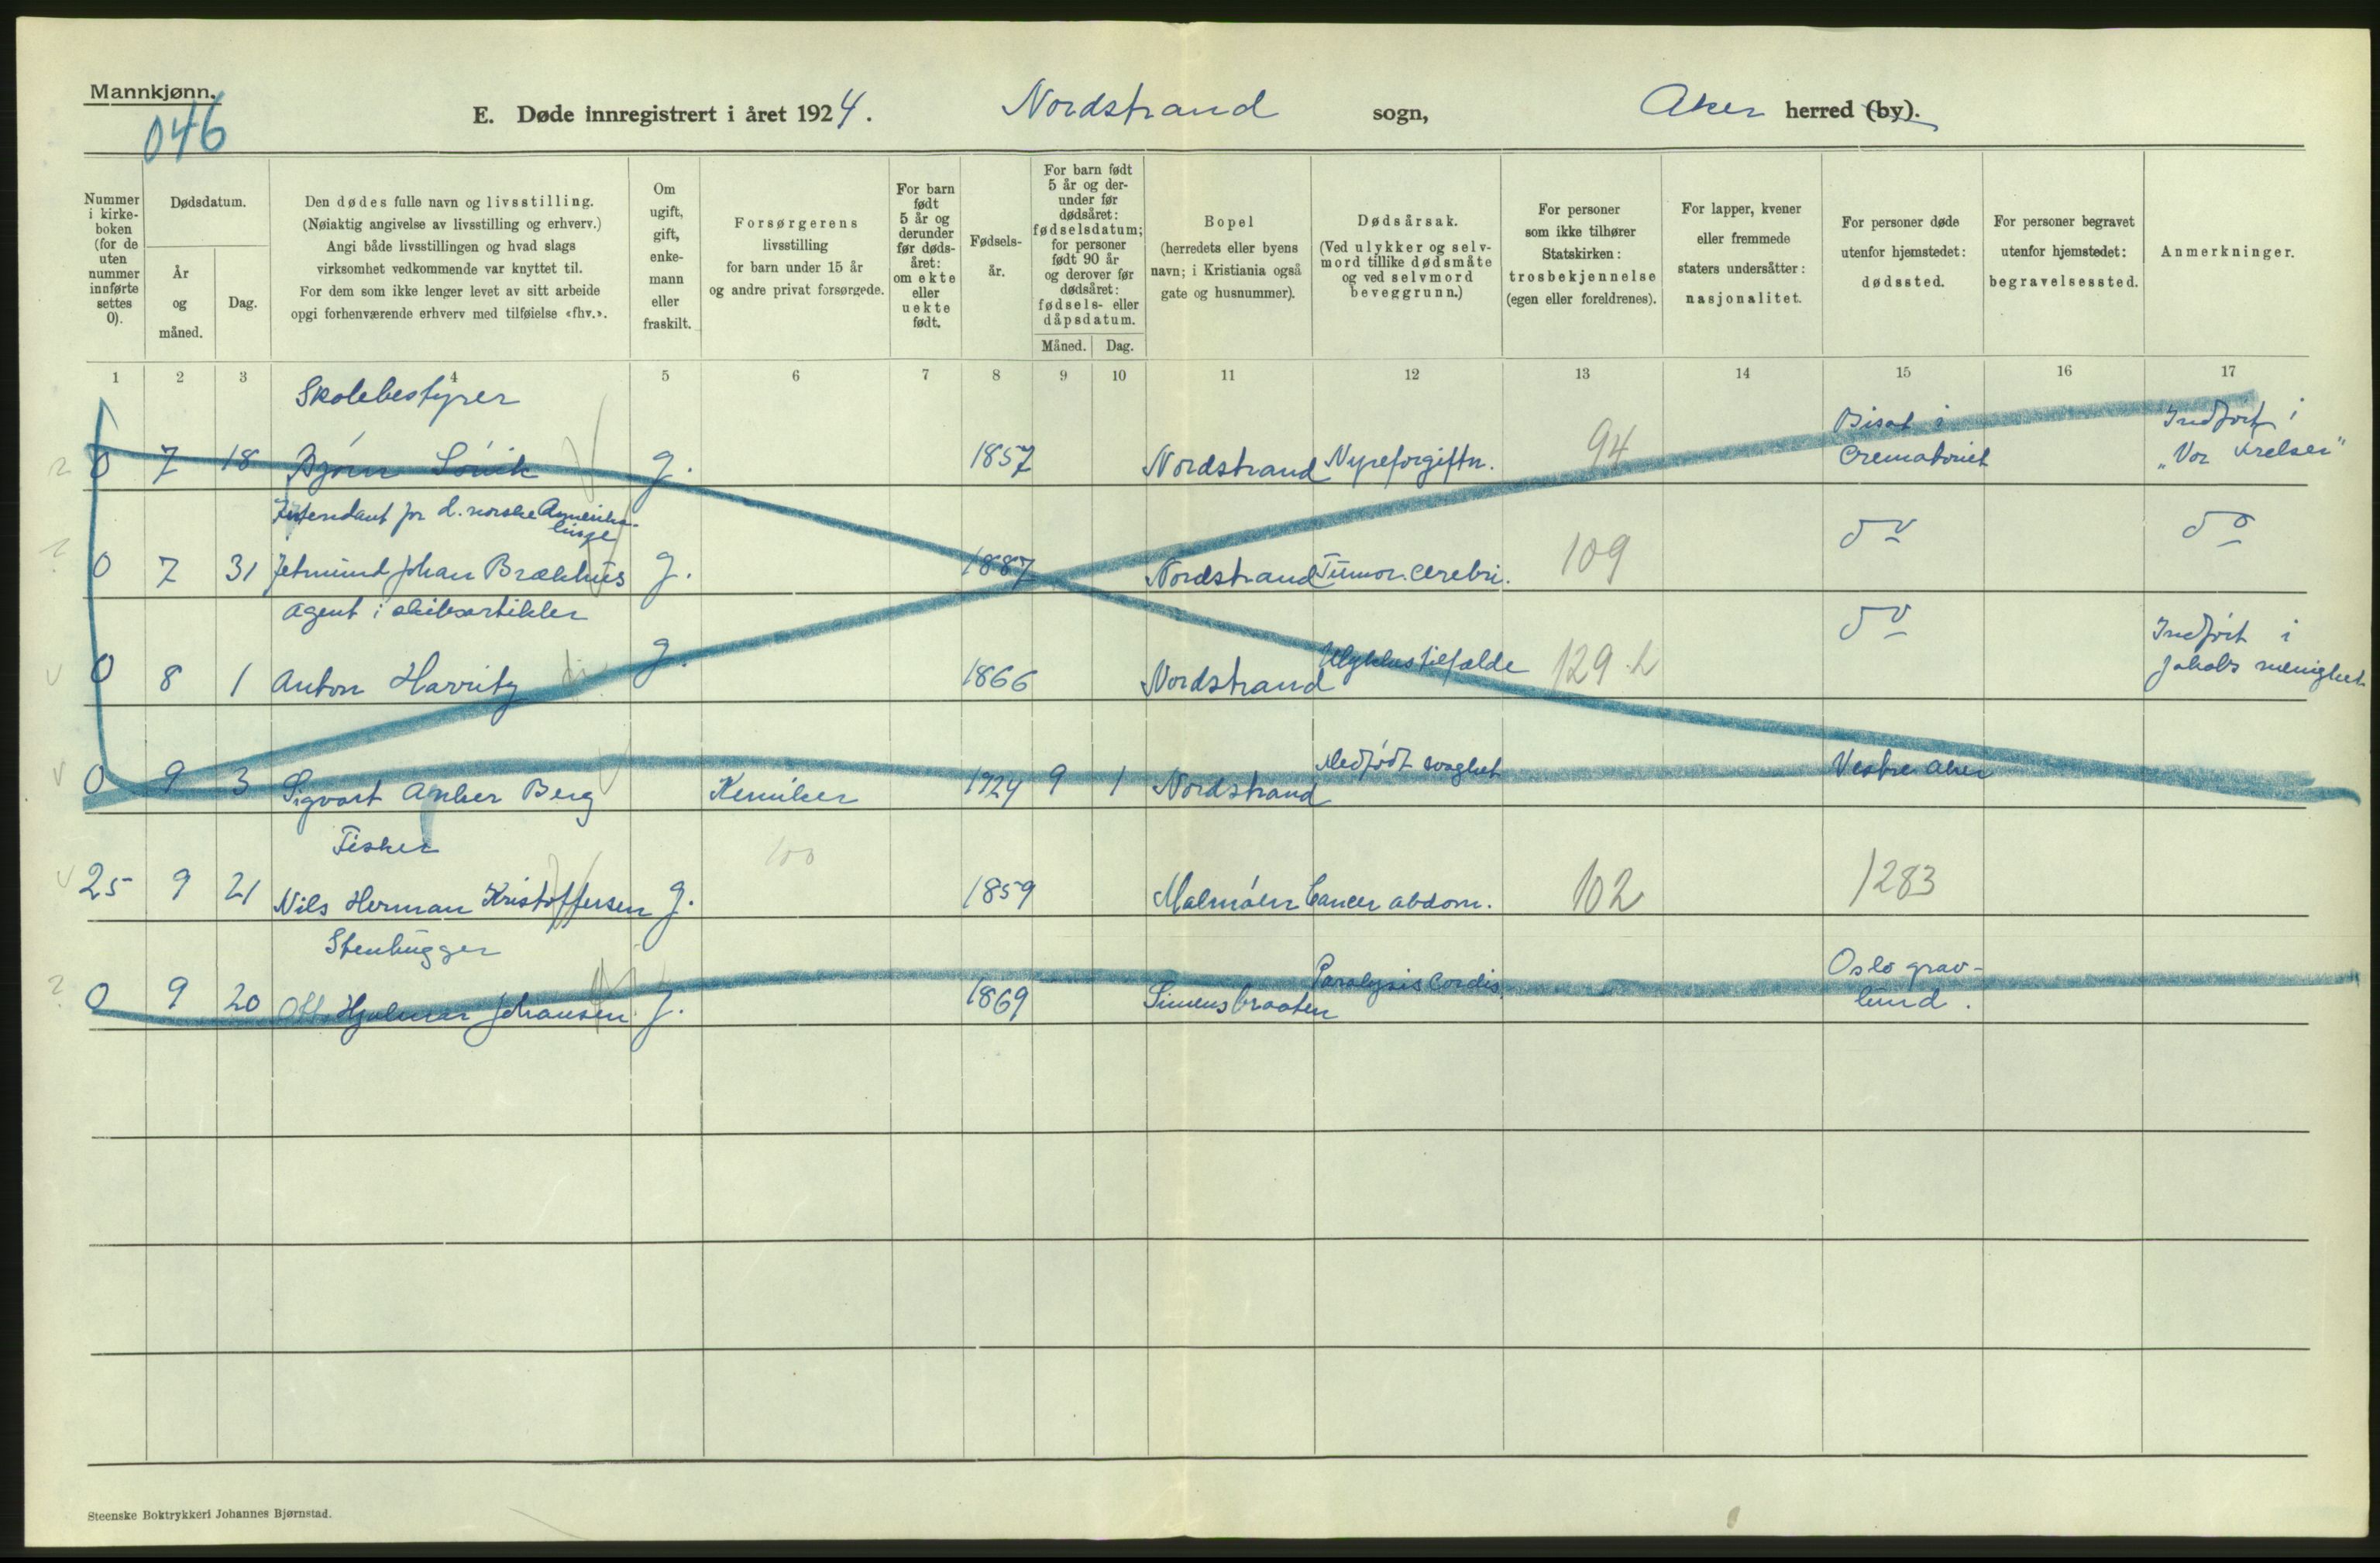 Mannkjønn.
046
E. Døde innregistrert i året 1924.
Nordstrand sogn,
Aker herred (by).
Nummer i kirke-boken (for de uten nummer innførte settes 0).
Dødsdatum.
År og måned.
Dag.
Den dødes fulle navn og livsstilling.
(Nøiaktig angivelse av livsstilling og erhverv.)
Angi både livsstillingen og hvad slags
virksomhet vedkommende var knyttet til.
For dem som ikke lenger levet av sitt arbeide
opgi forhenværende erhverv med tilføielse «fhv.».
Om ugift, gift, enke-mann eller fraskilt.
Forsørgerens
livsstilling
for barn under 15 år
og andre privat forsørgede.
For barn født 5 år og derunder før døds-året: om ekte eller uekte født.
Fødsels-år.
For barn født 5 år og der-under før dødsåret: fødselsdatum; for personer født 90 år og derover før dødsåret: fødsels- eller dåpsdatum.
Måned.
Dag.
Bopel
(herredets eller byens
navn; i Kristiania også
gate og husnummer).
Dødsårsak.
(Ved ulykker og selv-
mord tillike dødsmåte
og ved selvmord
beveggrunn.)
For personer
som ikke tilhører
Statskirken:
trosbekjennelse
(egen eller foreldrenes).
For lapper, kvener
eller fremmede
staters undersåtter:
nasjonalitet.
For personer døde
utenfor hjemstedet:
dødssted.
For personer begravet
utenfor hjemstedet:
begravelsessted.
Anmerkninger.
1 2 3 4 5 6 7 8 9 10 11 12 13 14 15 16 17
Skolebestyrer
Bisat i
Indført i
0 7 18 Bjørn g. 1857 Nordstrand Nyreforgiftn. 94 Crematoriet "Vor Frelser"
Intendant for d. norske Amerika-
linje
0 7 31 Jetmund Johan Brækhus g. 1887 Nordstrand Tumor cerebri. 109 do do
Agent i skibsartikler
do
Indført i
0 8 1 Anton Havrity g. 1866 Nordstrand Ulykkestilfælde 129 Jakobs menighet
0 9 3 Sigvart Anker Berg Kemiker 1924 9 1 Nordstrand Medfødt svaghet Vestre Aker
Fisker
100
25 9 21 Nils Herman Kristoffersen g. 1859 Malmøen Cancer abdom. 102 1283
Stenhugger
Oslo grav-
0 9 20 Otto Hjalmar Johansen g. 1869 Simensbraaten Paralysis Cordis. lund.
Steenske Boktrykkeri Johannes Bjørnstad.